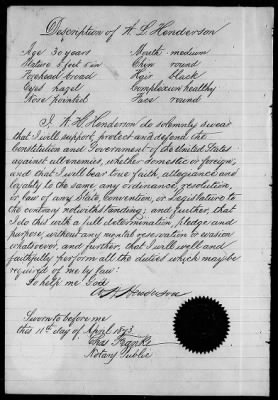 Description of A H Henderson
Age 30 years Mouth medium
Stature 5 feet 8 in Chin round
Forehead broad Hair black
Eyes hazel Complexion healthy
Nose pointed Face round
I, A. H. Henderson do solemnly swear
that I will support, protect and defend the
Constitution and Government of the United States
against all enemies, whether domestic or foreign;
and that I will bear true faith, allegiance and
loyalty to the same, any ordinance, resolution,
or law of any State, Convention, or Legislature to
the contrary notwithstanding; and further, that
I do this with a full determination, pledge and
purpose, without any mental reservation or evasion
whatsoever; and further, that I will well and
faithfully perform all the duties which may be
required of me by law:
So help me God
A H Henderson
Sworn to before me
this 11th day of April 1873
Chas
Notary Public